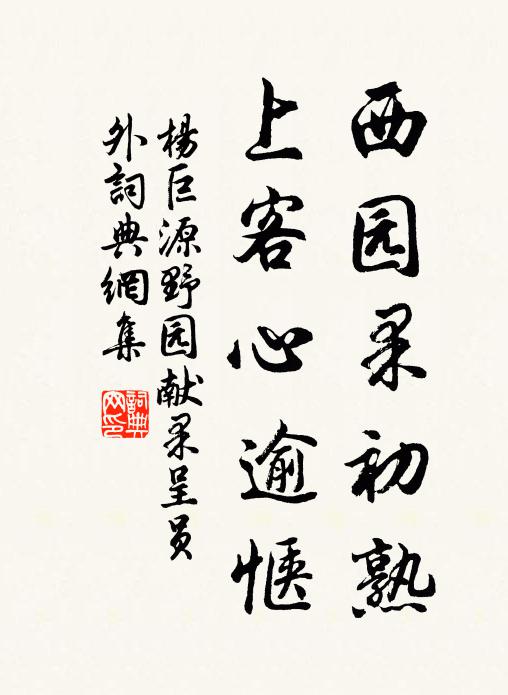 西园果初熟
上客心逾惬
楊巨源野园献果呈员
外詞典網集
詞典
网印